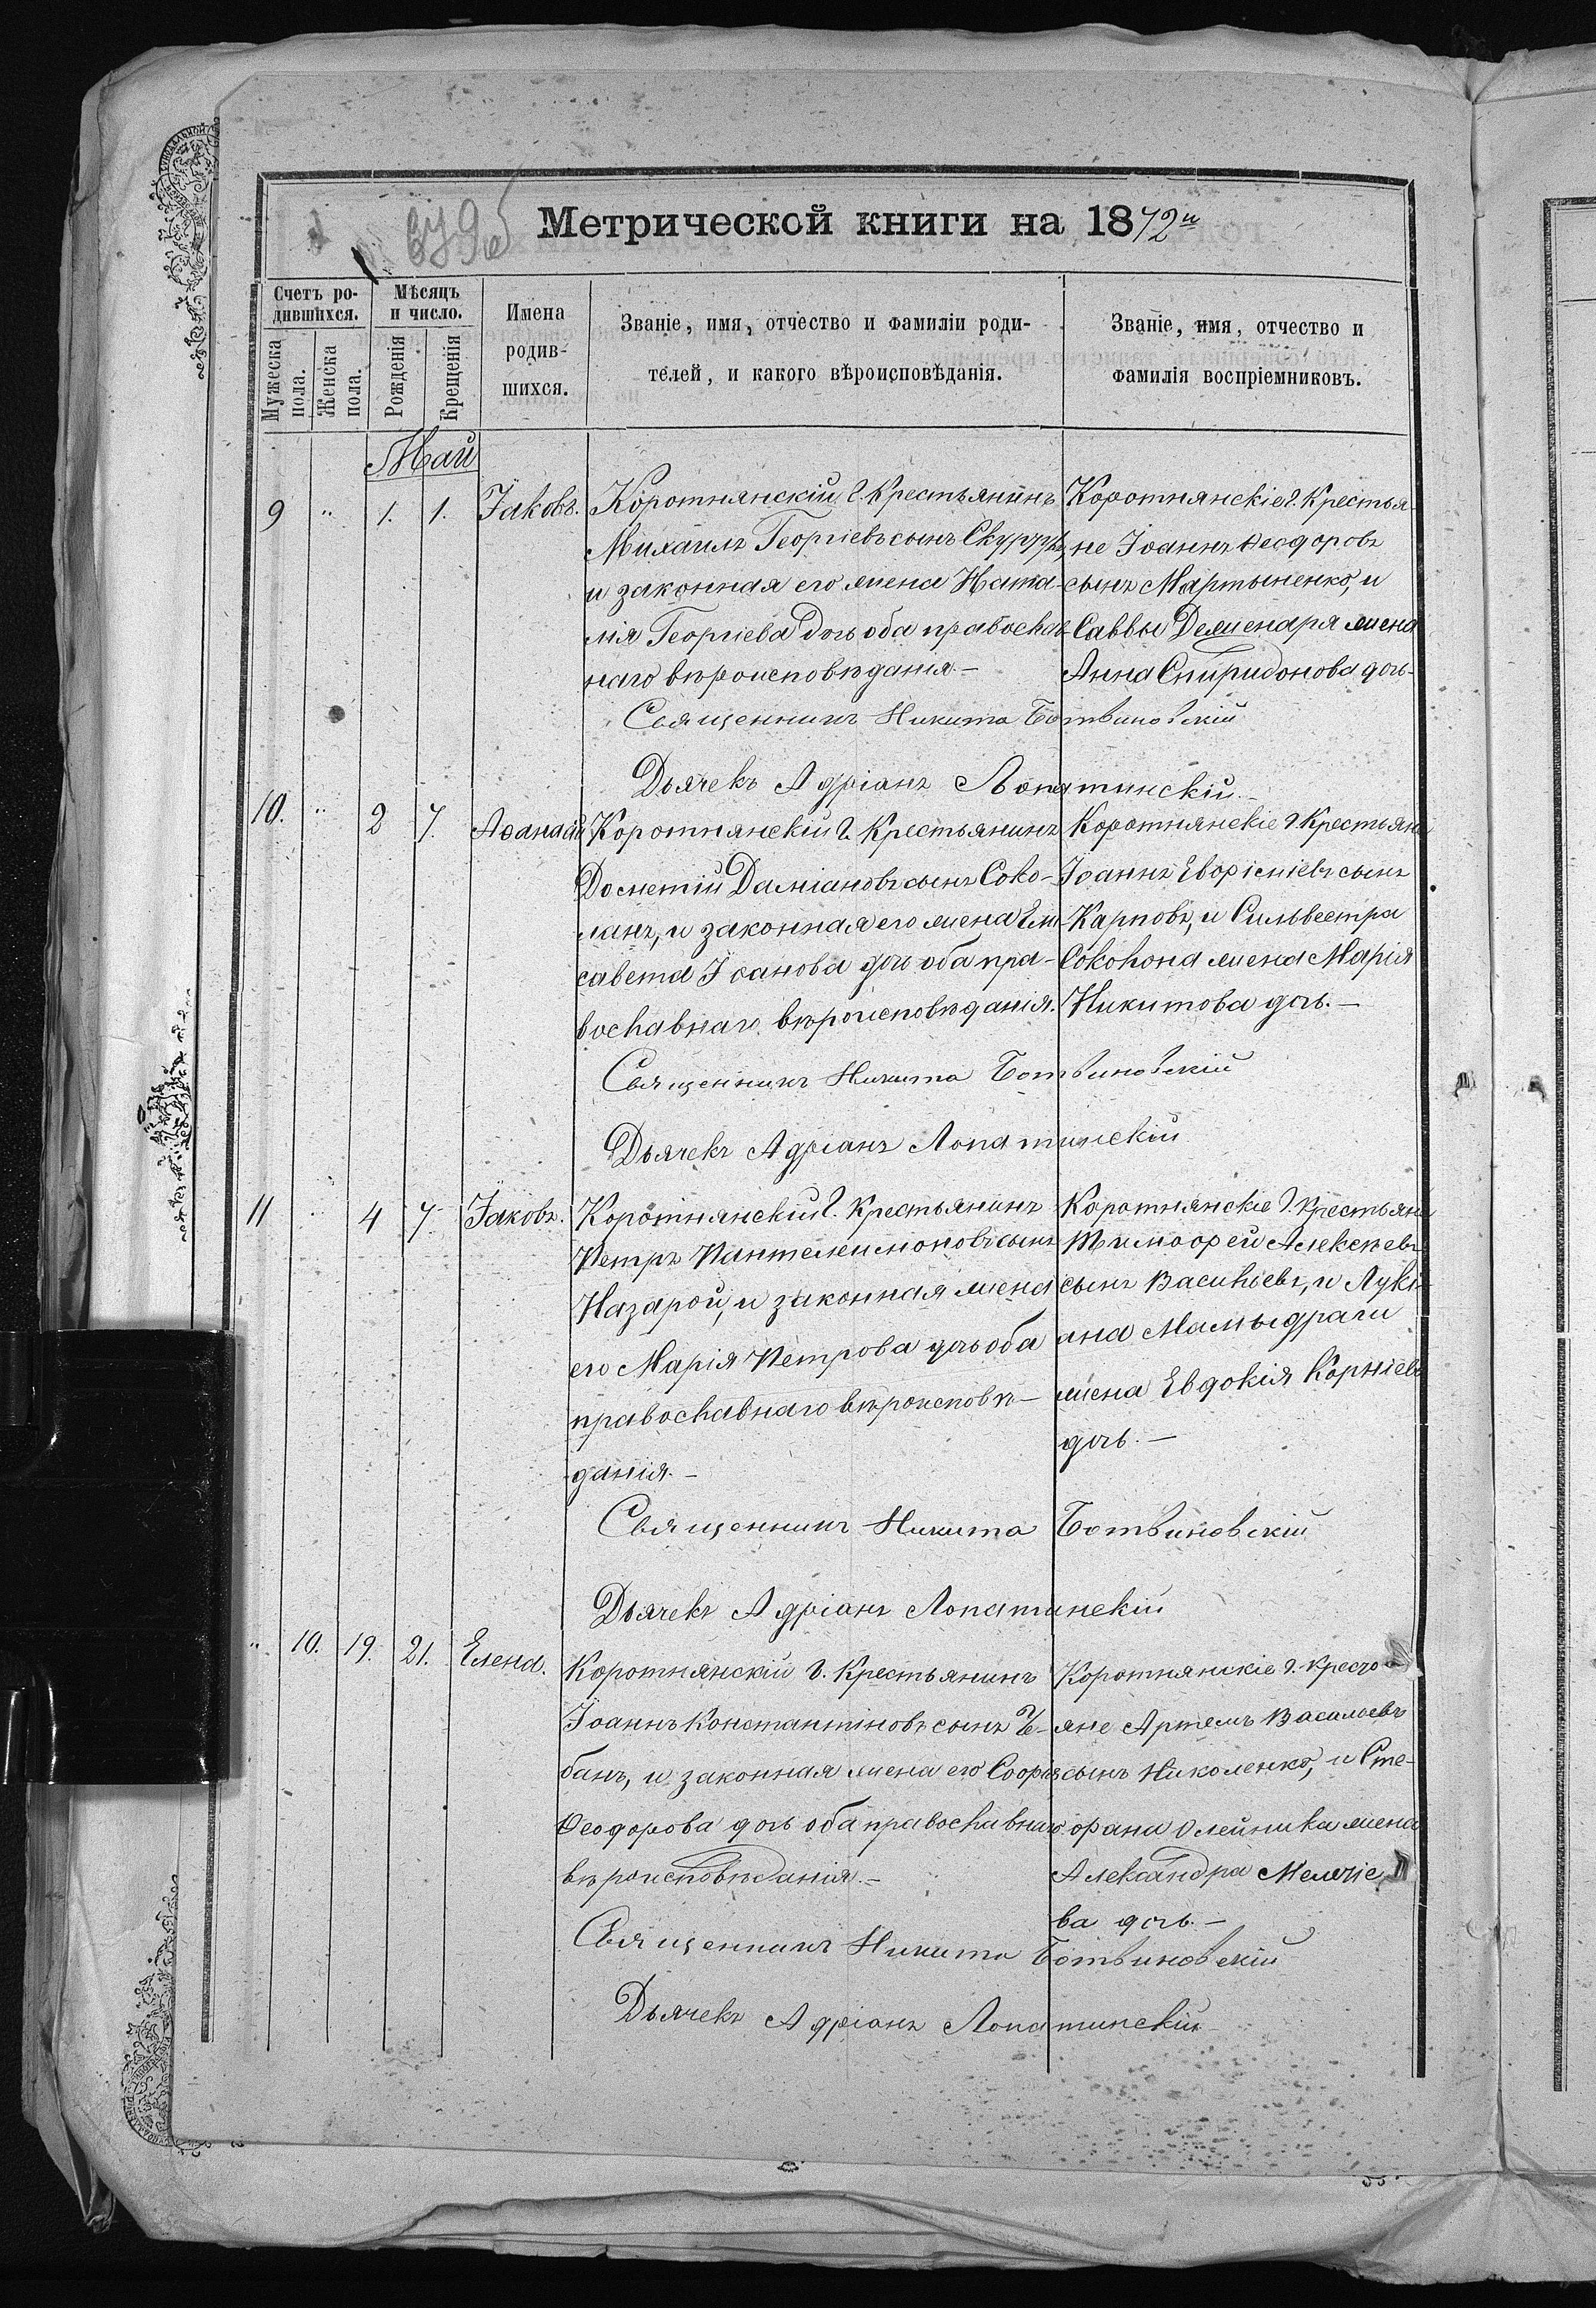 Метрической книги на 1872й
Счетъ ро-
дившихся.
Мужеска пола.
Женска пола.
Мѣсяцъ
и число.
Рожденія
Крещенія
Имена
родив-
шихся.
Званіе, имя, отчество и фамиліи роди-
телей, и какого вѣроисповѣданія.
Званіе, имя, отчество и
фамилія воспріемниковъ.
Май
9 " 1. 1. Іаковъ.
Коротнянскій г. Крестьянинъ
Михаилъ Георгіевъ сынъ
и законная его жена Ната-
лія Георгіева дочь оба православ-
наго вѣроисповѣданія.-
Коротнянскіе г. Крестья-
не Іоаннъ Ѳеодоровъ
сынъ Мартыненко, и
Саввы жена
Анна Спиридонова дочь-
Священникъ Никита Ботвиновскій
Дьячекъ Адріанъ Лопатинскій.-
10. " 2 7. Аѳанасій
Коротнянскій г. Крестьянинъ
Дометій Даміановъ сынъ Соко-
ланъ, и законная его жена Ели-
савета Іоанова дочь оба пра-
вославнаго вѣроисповѣданія.
Коротнянскіе г. Крестьяне
Іоаннъ сынъ
Карповъ, и Сильвестра
жена Марія
Никитова дочь.-
Священникъ Никита Ботвиновскій
Дьячекъ Адріанъ Лопатинскій
11 " 4 7. Іаковъ.
Коротнянскій г. Крестьянинъ
Петръ Пантелеимоновъ сынъ
Назарой, и законная жена
его Марія Петрова дочь оба
православнаго вѣроисповѣ-
данія.-
Коротнянскіе г. Крестьяне
Тимофей Алексѣевъ
сынъ Васильевъ, и Лукі-
ана Мамыдраги
жена Евдокія Корніева
дочь.-
Священникъ Никита Ботвиновскій
Дьячекъ Адріанъ Лопатинскій
" 10. 19. 21. Елена.
Коротнянскій г. Крестьянинъ
Іоаннъ Константиновъ сынъ Че-
банъ, и законная жена его Софія
Ѳеодорова дочь оба православнаго
вѣроисповѣданія.-
Коротнянскіе г. кресть-
яне Артемъ Васильевъ
сынъ Николенко, и Сте-
фана Олейника жена
Александра Мелетіе-
ва дочь.-
Священникъ Никита Ботвиновскій
Дьячекъ Адріанъ Лопатинскій